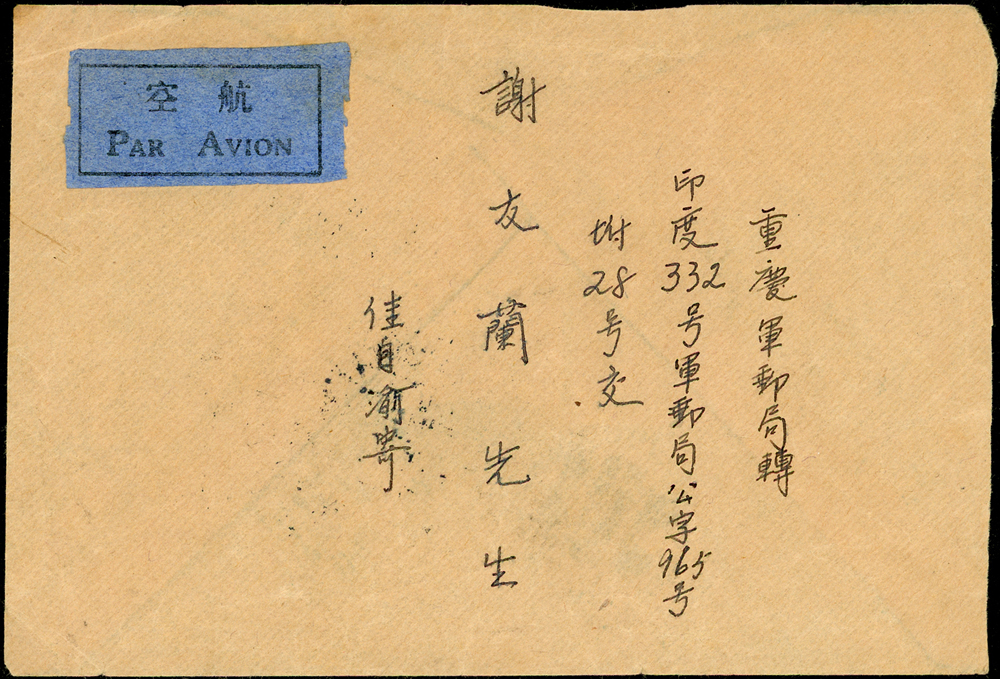 重慶軍郵局轉
印度332号軍郵局公字965号
附28号交
謝友蘭先生
佳自渝寄
空航
PAR AVION